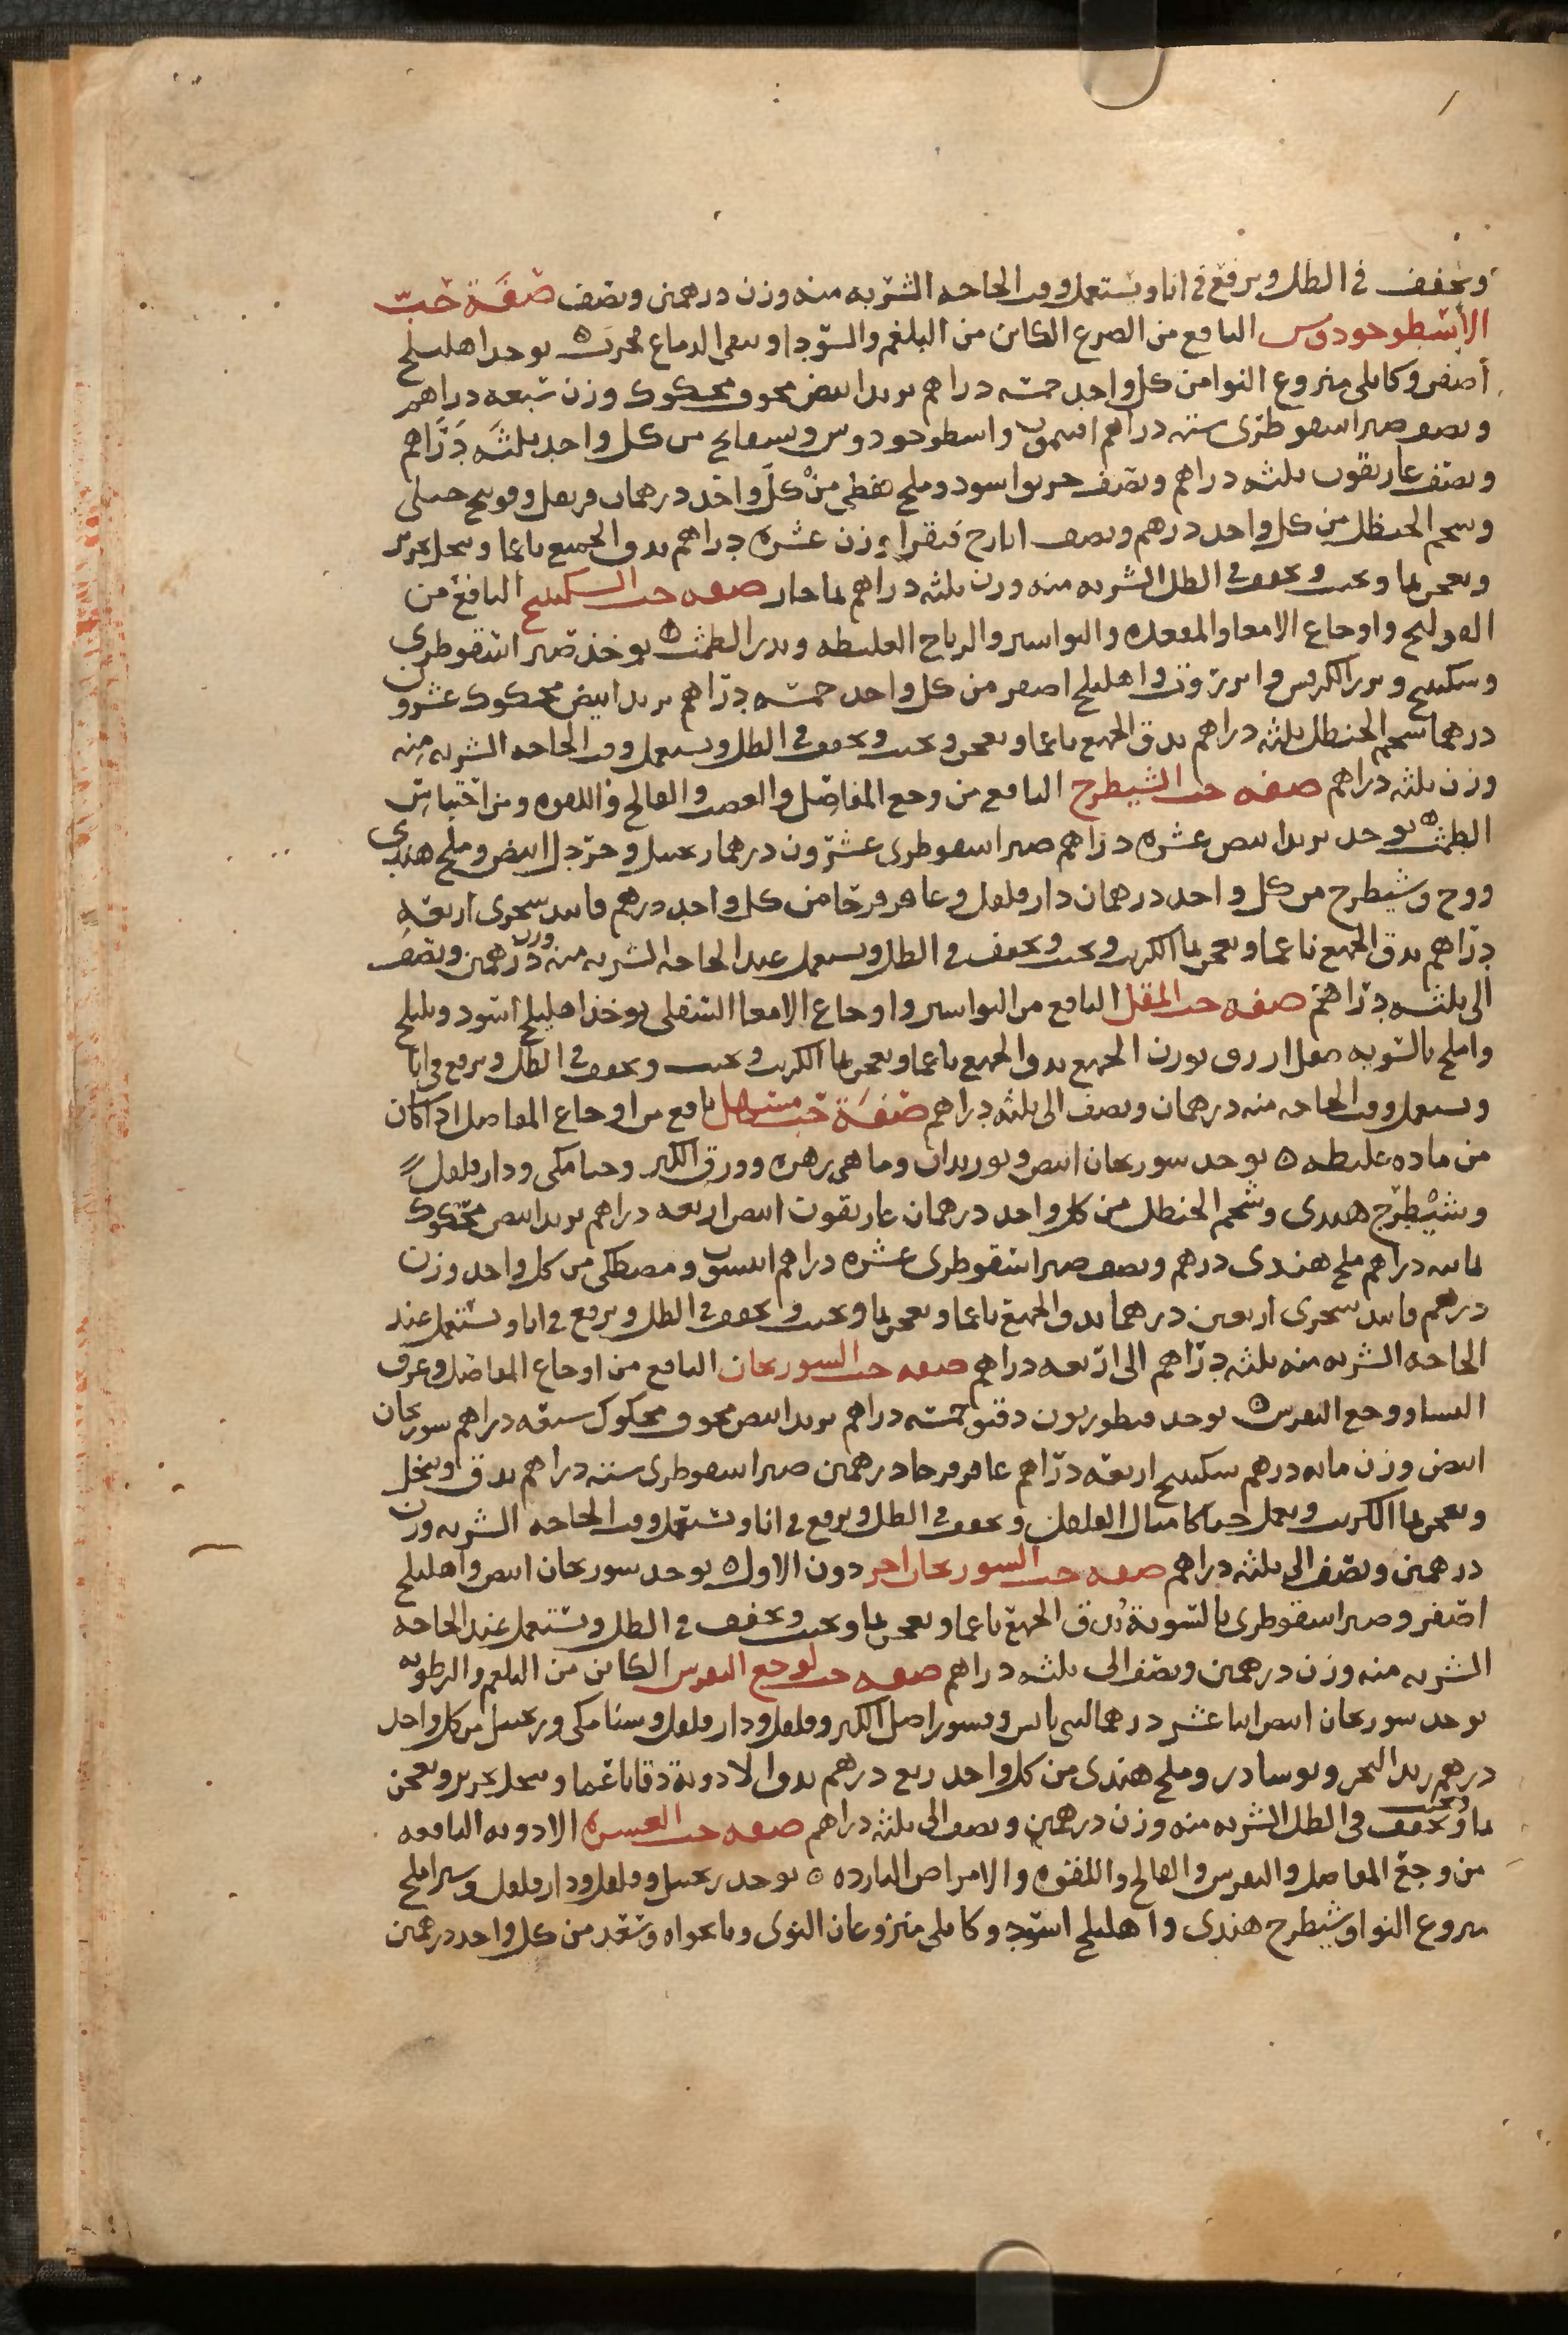 ويجفف في الظل ويرفع في انا ويستعمل وقت الحاجه الشربه منه وزن درهمين ونصف صفة حب
الأسطوخودوس النافع من الصرع الكاين من البلغم والسودا وينقى الدماغ مجرب ه يوخذ اهليلج
أصفر وكابلى منزوع النوا من كل واحد خمسه دراهم تربد ابيض مجوف محكوك وزن سبعه دراهم
ونصف صبر اسقوطرى سته دراهم افتيمون واسطوخودوس وبسفايج من كل واحد ثلثه دراهم
ونصف غاريقون ثلثه دراهم ونصف خربق اسود وملح نفطى من كل واحد درهمان قرنفل وفوتنج جبلى
وشحم الحنظل من كل واحد درهم ونصف ايارج فيقرا وزن عشره دراهم يدق الجميع ناعما وينخل بحرير
ويعجن بما ويحبب ويجفف في الظل الشربه منه وزن ثلثه دراهم بما حار صفه حب السكبينج النافع من
القولنج واوجاع الامعا والمقعده والبواسير والرياح الغليظه ويدر الطمث ه يوخذ صبر اسقوطرى
وسكبينج وبزر الكرفس وانزروت واهليلج اصفر من كل واحد خمسه دراهم تربد ابيض محكوك عشرون
درهما شحم الحنظل ثلثه دراهم يدق الجميع ناعما ويعجن ويحبب ويجفف في الظل ويستعمل وقت الحاجه الشربه منه
وزن ثلثه دراهم صفه حب الشيطرج النافع من وجع المفاصل والعصب والفالج واللقوه ومن احتباس
الطمث ه يوخذ تربد ابيض عشره دراهم صبر اسقوطرى عشرون درهما زنجبيل وخردل ابيض وملح هندى
ووج وشيطرج من كل واحد درهمان دار فلفل وعاقر قرحا من كل واحد درهم فانيد سجزى اربعه
دراهم يدق الجميع ناعما ويعجن بما الكراث ويحبب ويجفف في الظل ويستعمل عند الحاجه الشربه منه وزن درهمين ونصف
الى ثلثه دراهم صفه حب المقل النافع من البواسير واوجاع الامعا السفلى يوخذ اهليلج اسود وبليلج
واملج بالسويه مقل ازرق بوزن الجميع يدق الجميع ناعما ويعجن بما الكراث ويحبب ويجفف في الظل ويرفع في انا
ويستعمل وقت الحاجه منه درهمان ونصف الى ثلثه دراهم صفة حب مسهل نافع من اوجاع المفاصل اذا كان
من ماده غليظه ه يوخذ سورنجان ابيض وبوزيدان وماهى زهره وورق الكبر وحنا مكى ودار فلفل
وشيطرج هندى وشحم الحنظل من كل واحد درهمان غاريقون ابيض اربعه دراهم تربد ابيض محكوك
ثمانيه دراهم ملح هندى درهم ونصف صبر اسقوطرى عشره دراهم انيسون ومصطكى من كل واحد وزن
درهم فانيد سجزى اربعين درهما يدق الجميع ناعما ويعجن بما ويحبب ويجفف في الظل ويرفع في انا ويستعمل عند
الحاجه الشربه منه ثلثه دراهم الى اربعه دراهم صفه حب السورنجان النافع من اوجاع المفاصل وعرق
النسا ووجع النقرس ه يوخذ قنطوريون دقيق خمسه دراهم تربد ابيض مجوف محكوك سبعه دراهم سورنجان
ابيض وزن مايه درهم سكبينج اربعه دراهم عاقر قرحا درهمين صبر اسقوطرى سته دراهم يدق وينخل
ويعجن بما الكراث ويعمل حبا كامثال الفلفل ويجفف في الظل ويرفع في انا ويستعمل وقت الحاجه الشربه وزن
درهمين ونصف الى ثلثه دراهم صفه حب السورنجان اخر دون الاول ه يوخذ سورنجان ابيض واهليلج
اصفر وصبر اسقوطرى بالسوية يدق الجميع ناعما ويعجن بما ويحبب ويجفف في الظل ويستعمل عند الحاجه
الشربه منه وزن درهمين ونصف الى ثلثه دراهم صفه حب لوجع النقرس الكاين من البلغم والرطوبه
يوخذ سورنجان ابيض اثنا عشر درهما لبنى يابس وقشور اصل الكبر وفلفل ودار فلفل وسنا مكى وزنجبيل من كل واحد
درهم زبد البحر ونوشادر وملح هندى من كل واحد ربع درهم يدق الادويه دقا ناعما وينخل بحرير ويعجن
بما ويحبب ويجفف في الظل الشربه منه وزن درهمين ونصف الى ثلثه دراهم صفه حب العشره الادويه النافعه
من وجع المفاصل والنقرس والفالج واللقوه والامراض البارده ه يوخذ زنجبيل وفلفل ودار فلفل وشير املج
منزوع النوا وشيطرج هندى واهليلج اسود وكابلى منزوعان النوى ونانخواه وسعد من كل واحد درهمين